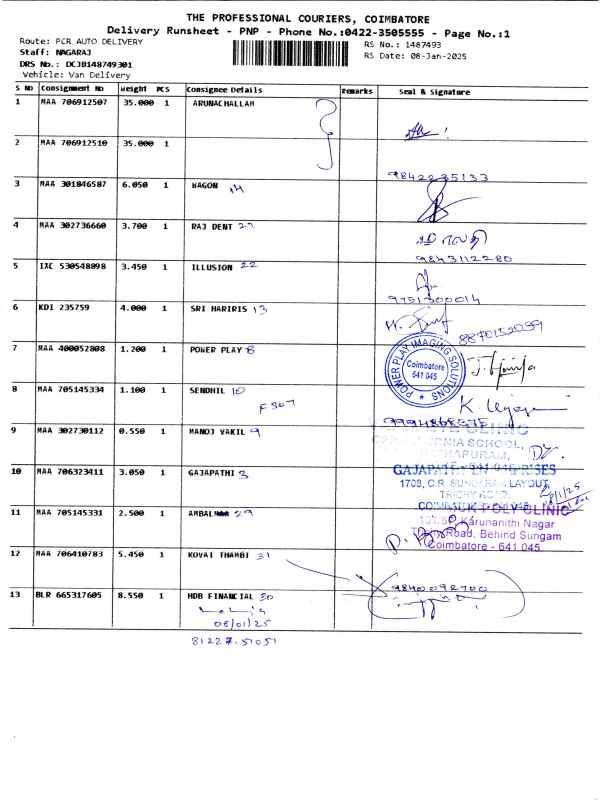 THE PROFESSIONAL COURIERS, COIMBATORE
Delivery Runsheet - PNP - Phone No.:0422-3505555 - Page No.:1
Route: PCR AUTO DELIVERY
RS No.: 1487493
Staff: NAGARAJ
RS Date: 08-Jan-2025
DRS No.: DCJB148749301
Vehicle: Van Delivery
S No Consignment No Weight PCS Consignee Details Remarks Seal & Signature
1 MAA 706912507 35.000 1 ARUNACHALLAM
2 MAA 706912510 35.000 1
9842235133
3 MAA 301846587 6.050 1 WAGON 14
4 MAA 302736660 3.700 1 RAJ DENT 27
9843112280
5 IXC 530548898 3.450 1 ILLUSION 22
9751300014
6 KDI 235759 4.000 1 SRI HARIRIS 13
8870152039
7 MAA 400052808 1.200 1 POWER PLAY 8
POWER PLAY IMAGING SOLUTIONS
Coimbatore
641 045
8 MAA 705145334 1.100 1 SENDHIL 10
F 307
9 MAA 302730112 0.550 1 MANOJ VAKIL 9
10 MAA 706323411 3.050 1 GAJAPATHI 3
1708, C.R. SUNDARAM LAYOUT,
TRICHY ROAD,
11 MAA 705145331 2.500 1 29
POLY CLINIC
Karunanithi Nagar
Road, Behind Sungam
Coimbatore - 641 045
12 MAA 706410783 5.450 1 KOVAI THAMBI 31
9840092700
13 BLR 665317605 8.550 1 HDB FINANCIAL 30
08/01/25
81227-51051